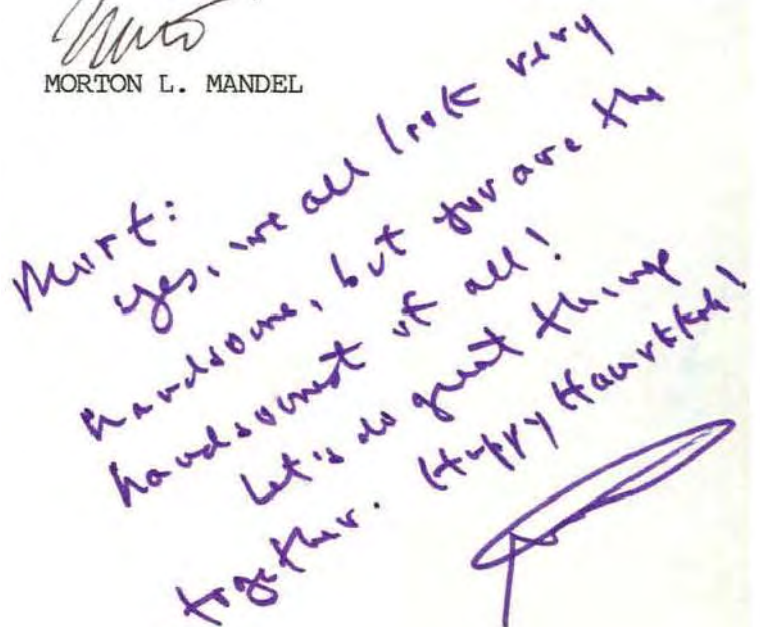 Mort
MORTON L. MANDEL
Mort:
yes, we all look very
handsome, but you are the
handsomest of all!
Let's do great things
together. Happy Hanukkah!